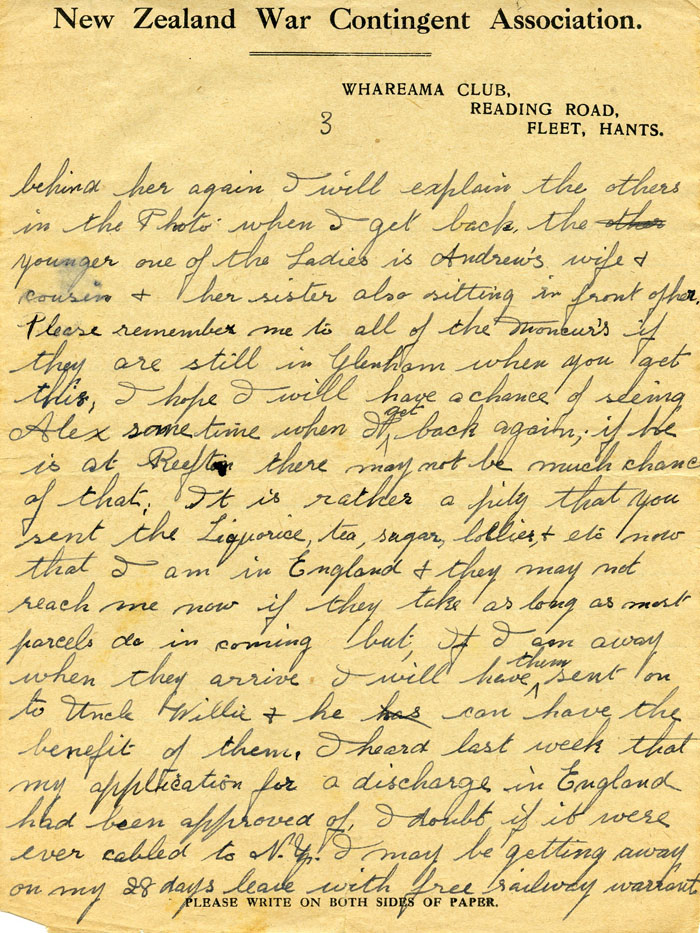 New Zealand War Contingent Association.
WHAREAMA CLUB,
READING ROAD,
FLEET, HANTS.
3
behind her again I will explain the others
in the Photo when I get back, the other
younger one of the Ladies is Andrew's wife &
cousin & her sister also sitting in front of her.
Please remember me to all of the Moncur's if
they are still in Glenham when you get
this, I hope I will have a chance of seeing
Alex some time when I get back again, if he
is at Reefton there may not be much chance
of that. It is rather a pity that you
sent the Liquorice, tea, sugar, lollies, & etc now
that I am in England & they may not
reach me now if they take as long as most
parcels do in coming but, If I am away
when they arrive I will have them sent on
to Uncle Willie & he has can have the
benefit of them. I heard last week that
my application for a discharge in England
had been approved of, I doubt if it were
ever cabled to N.Z. I may be getting away
on my 28 days leave with free railway warrant
PLEASE WRITE ON BOTH SIDES OF PAPER.